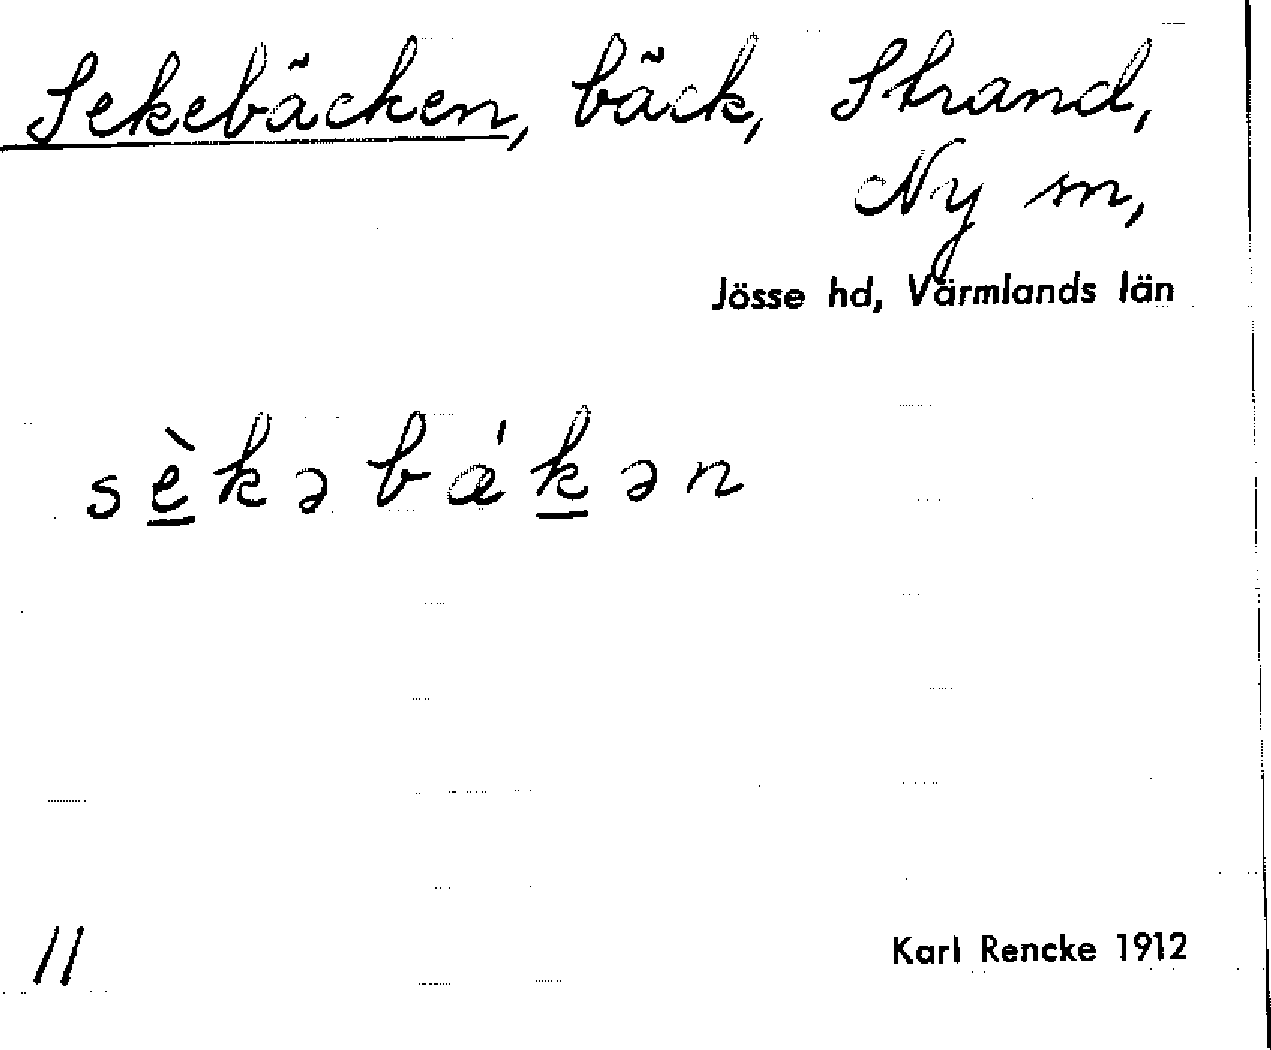 Sekebäcken, bäck, Strand,
Ny sn,
Jösse hd, Värmlands län
sè̱kəbǽḵən
11
Karl Rencke 1912